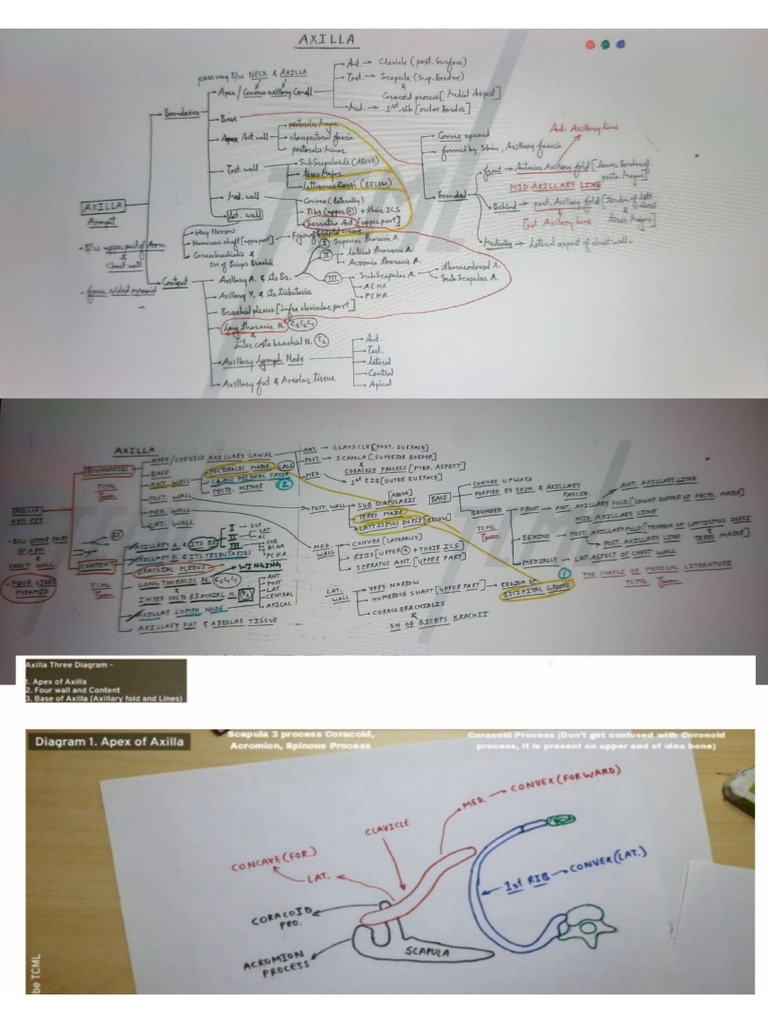 AXILLA
passway B/w NECK & AXILLA
Boundaries
Apex / Cervico axillary Canal
Ant. → Clavicle (post. Surface)
Post. → Scapula (Sup. Border)
&
Coracoid process [Medial Aspect]
Med. → 1st rib [outer Border]
Base
Apex Ant wall
pectoralis Major
clavipectoral fascia
pectoralis Minor
Post. wall
SubScapularis (ABOVE)
teres Major
latissimus Dorsi (BELOW)
Med. wall
Convex (laterally)
Ribs (upper 4) + their ICS
Serratus Ant. [upper part]
Lat. wall
Very Narrow
Humerus Shaft [upper part]
Coracobrachialis
&
SH of Biceps Brachii
Convex upward
formed by Skin, Axillary fascia
Bounded
Front → Anterior Axillary fold [lower Border of pecto. Major]
Ant. Axillary line
MID AXILLARY LINE
Behind → post. Axillary fold [Tendon of latt. dorsi & teres Major]
Post. Axillary line
Medially → lateral aspect of chest wall
AXILLA
Armpit
B/w upper part of Arm
&
chest wall
four sided pyramid
Content
Axillary A. & its Br.
I Superior thoracic A.
II
lateral thoracic A.
Acromio thoracic A.
III
SubScapular A.
thoracodorsal A.
SubScapular A.
ACHA
PCHA
Axillary V. & its tributaries
Brachial plexus [infra clavicular part]
long thoracic N. C5C6C7
&
Intercosto brachial N. T2
Axillary lymph Node
Ant.
Post.
lateral
Central
Apical
Axillary fat & Areolar tissue
AXILLA
BOUNDARIES
APEX/CERVICO AXILLARY CANAL
ANT. → CLAVICLE [POST. SURFACE]
POST. → SCAPULA [SUPERIOR BORDER]
&
CORACOID PROCESS [MED. ASPECT]
MED. → 1st RIB [OUTER SURFACE]
BASE
ANT WALL
PECTORALIS MAJOR
PECTO. MINOR
2
POST. WALL
MED. WALL
LAT. WALL
TCML
POST. WALL
SUB SCAPULARIS [ABOVE]
TERES MAJOR
LATTISSIMUS DORSI [BELOW]
BASE
CONVEX UPWARD
FORMED BY SKIN & AXILLARY FASCIA
BOUNDED
FRONT → ANT. AXILLARY FOLD [LOWER BORDER OF PECTO. MAJOR]
ANT. AXILLARY LINE
MID AXILLARY LINE
BEHIND → POST. AXILLARY FOLD [TENDON OF LATTISMUS DORSI & TERES MAJOR]
POST. AXILLARY LINE
MEDIALLY → LAT. ASPECT OF CHEST WALL
TCML
AXILLA
ARM PIT
B/W UPPER PART OF ARM
&
CHEST WALL
FOUR SIDED PYRAMID
CONTENT
TCML
AXILLARY A. & ITS BR.
I SUP.
II LAT. AC
III SUB ACHA PCHA
AXILLARY V. & ITS TRIBUTARIES
BRACHIAL PLEXUS
WINGING
LONG THORACIC N. C5C6C7
&
INTER COSTO BRACHIAL N. T2
AXILLARY LYMPH NODE
ANT
POST
LAT.
CENTRAL
APICAL
AXILLARY FAT & AREOLAR TISSUE
MED. WALL
CONVEX (LATERALLY)
RIBS [UPPER 4 + THEIR ICS]
SERRATUS ANT. [UPPER PART]
LAT. WALL
VERY NARROW
HUMEROUS SHAFT [UPPER PART]
REGION OF BICIPITAL GROOVE
1
CORACOBRACHIALIS
&
SH OF BICEPS BRACHII
THE CHARLIE OF MEDICAL LITERATURE
TCML
Axilla Three Diagram -
1. Apex of Axilla
2. Four wall and Content
3. Base of Axilla (Axillary fold and Lines)
Diagram 1. Apex of Axilla
Scapula 3 process Coracoid,
Acromion, Spinous Process
Coracoid Process (Don't get confused with Coronoid
process, it is present on upper end of ulna bone)
MED. → CONVEX (FORWARD)
CLAVICLE
CONCAVE (FOR.)
LAT.
1st RIB → CONVEX (LAT.)
CORACOID
PRO.
ACROMION
PROCESS
SCAPULA
be TCML